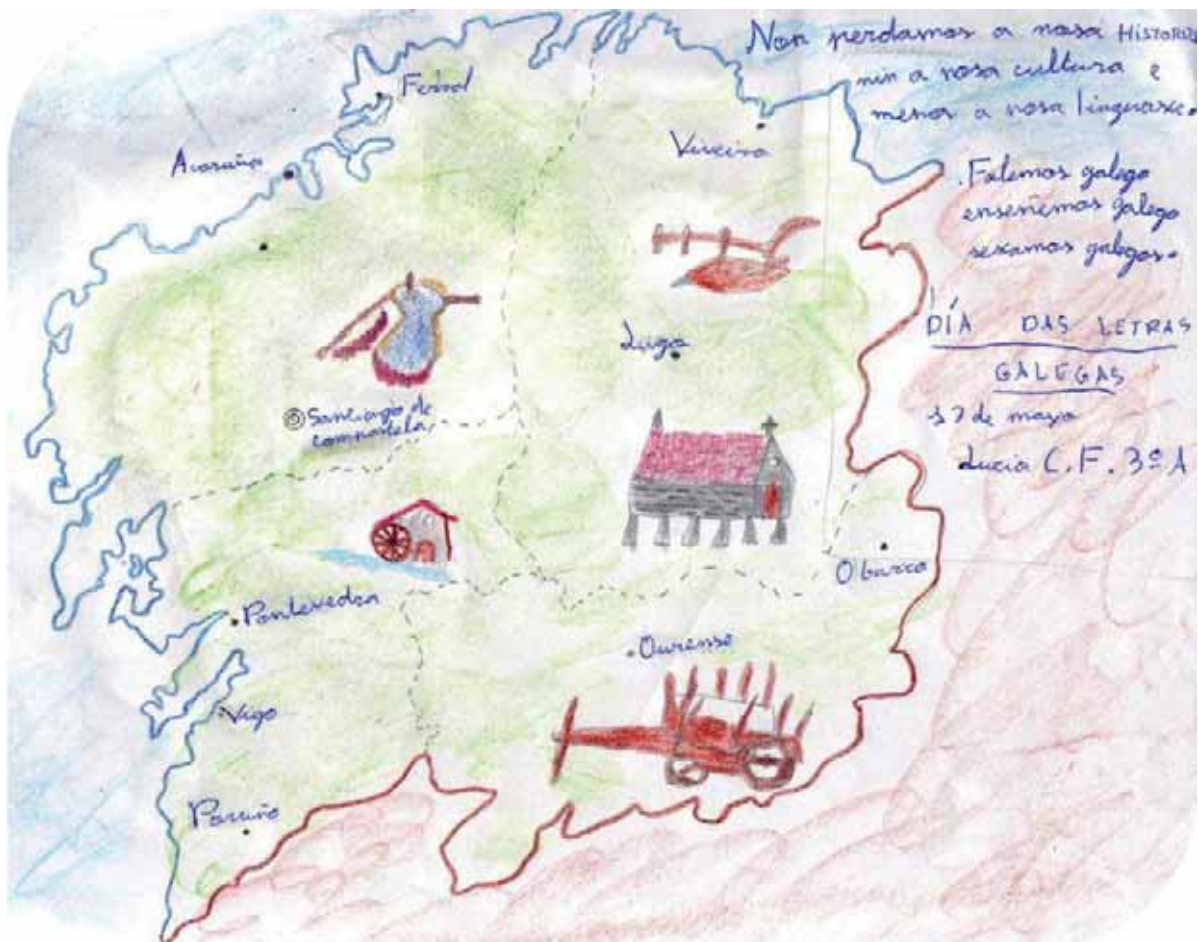 Non perdamos a nosa HISTORIA
nin a nosa cultura e
menos a nosa linguaxe.
Ferrol
Viveiro
A coruña
. Falemos galego
enseñemos galego
sexamos galegos.
DÍA DAS LETRAS
GALEGAS
17 de maio
Lucia C.F. 3º A
Lugo
Santiago de
compostela
O barco
Pontevedra
Ourense
Vigo
Porriño